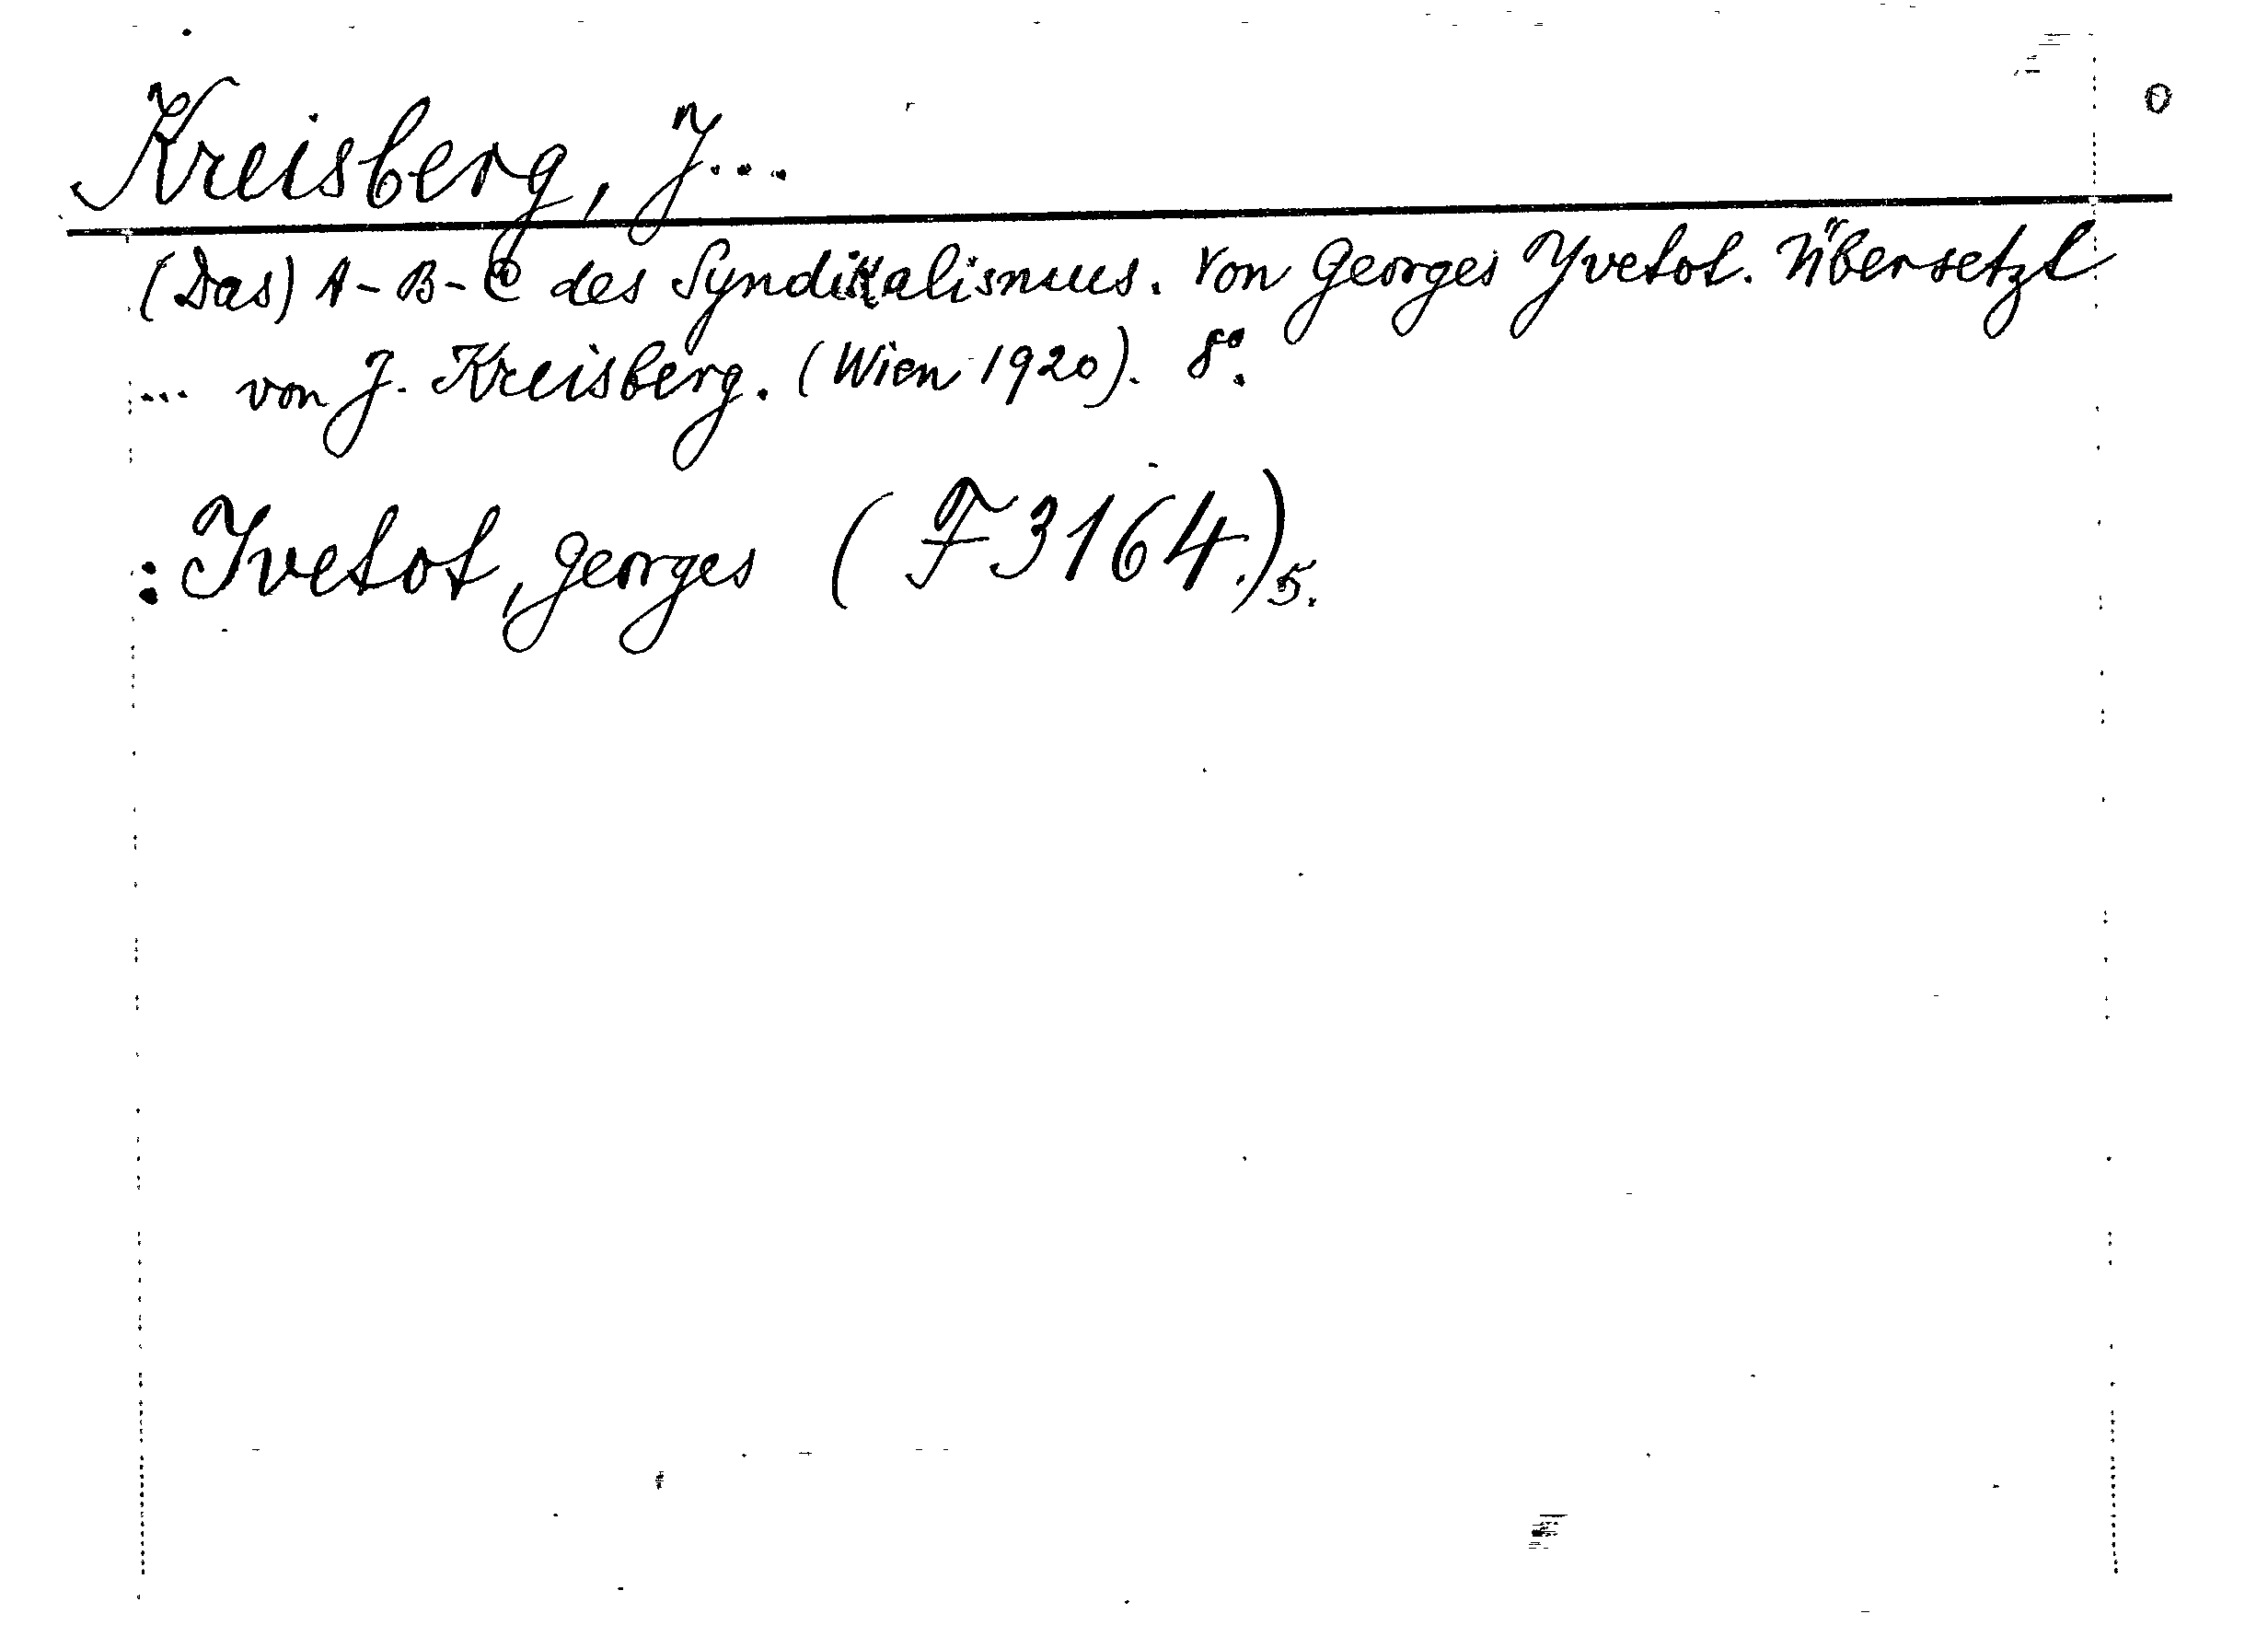 Kreisberg, J...
(Das) A-B-C des Syndikalismus. Von Georges Yvetot. Übersetzt
... von J. Kreisberg. (Wien 1920). 8°.
: Yvetot, Georges (F 3164.)5.